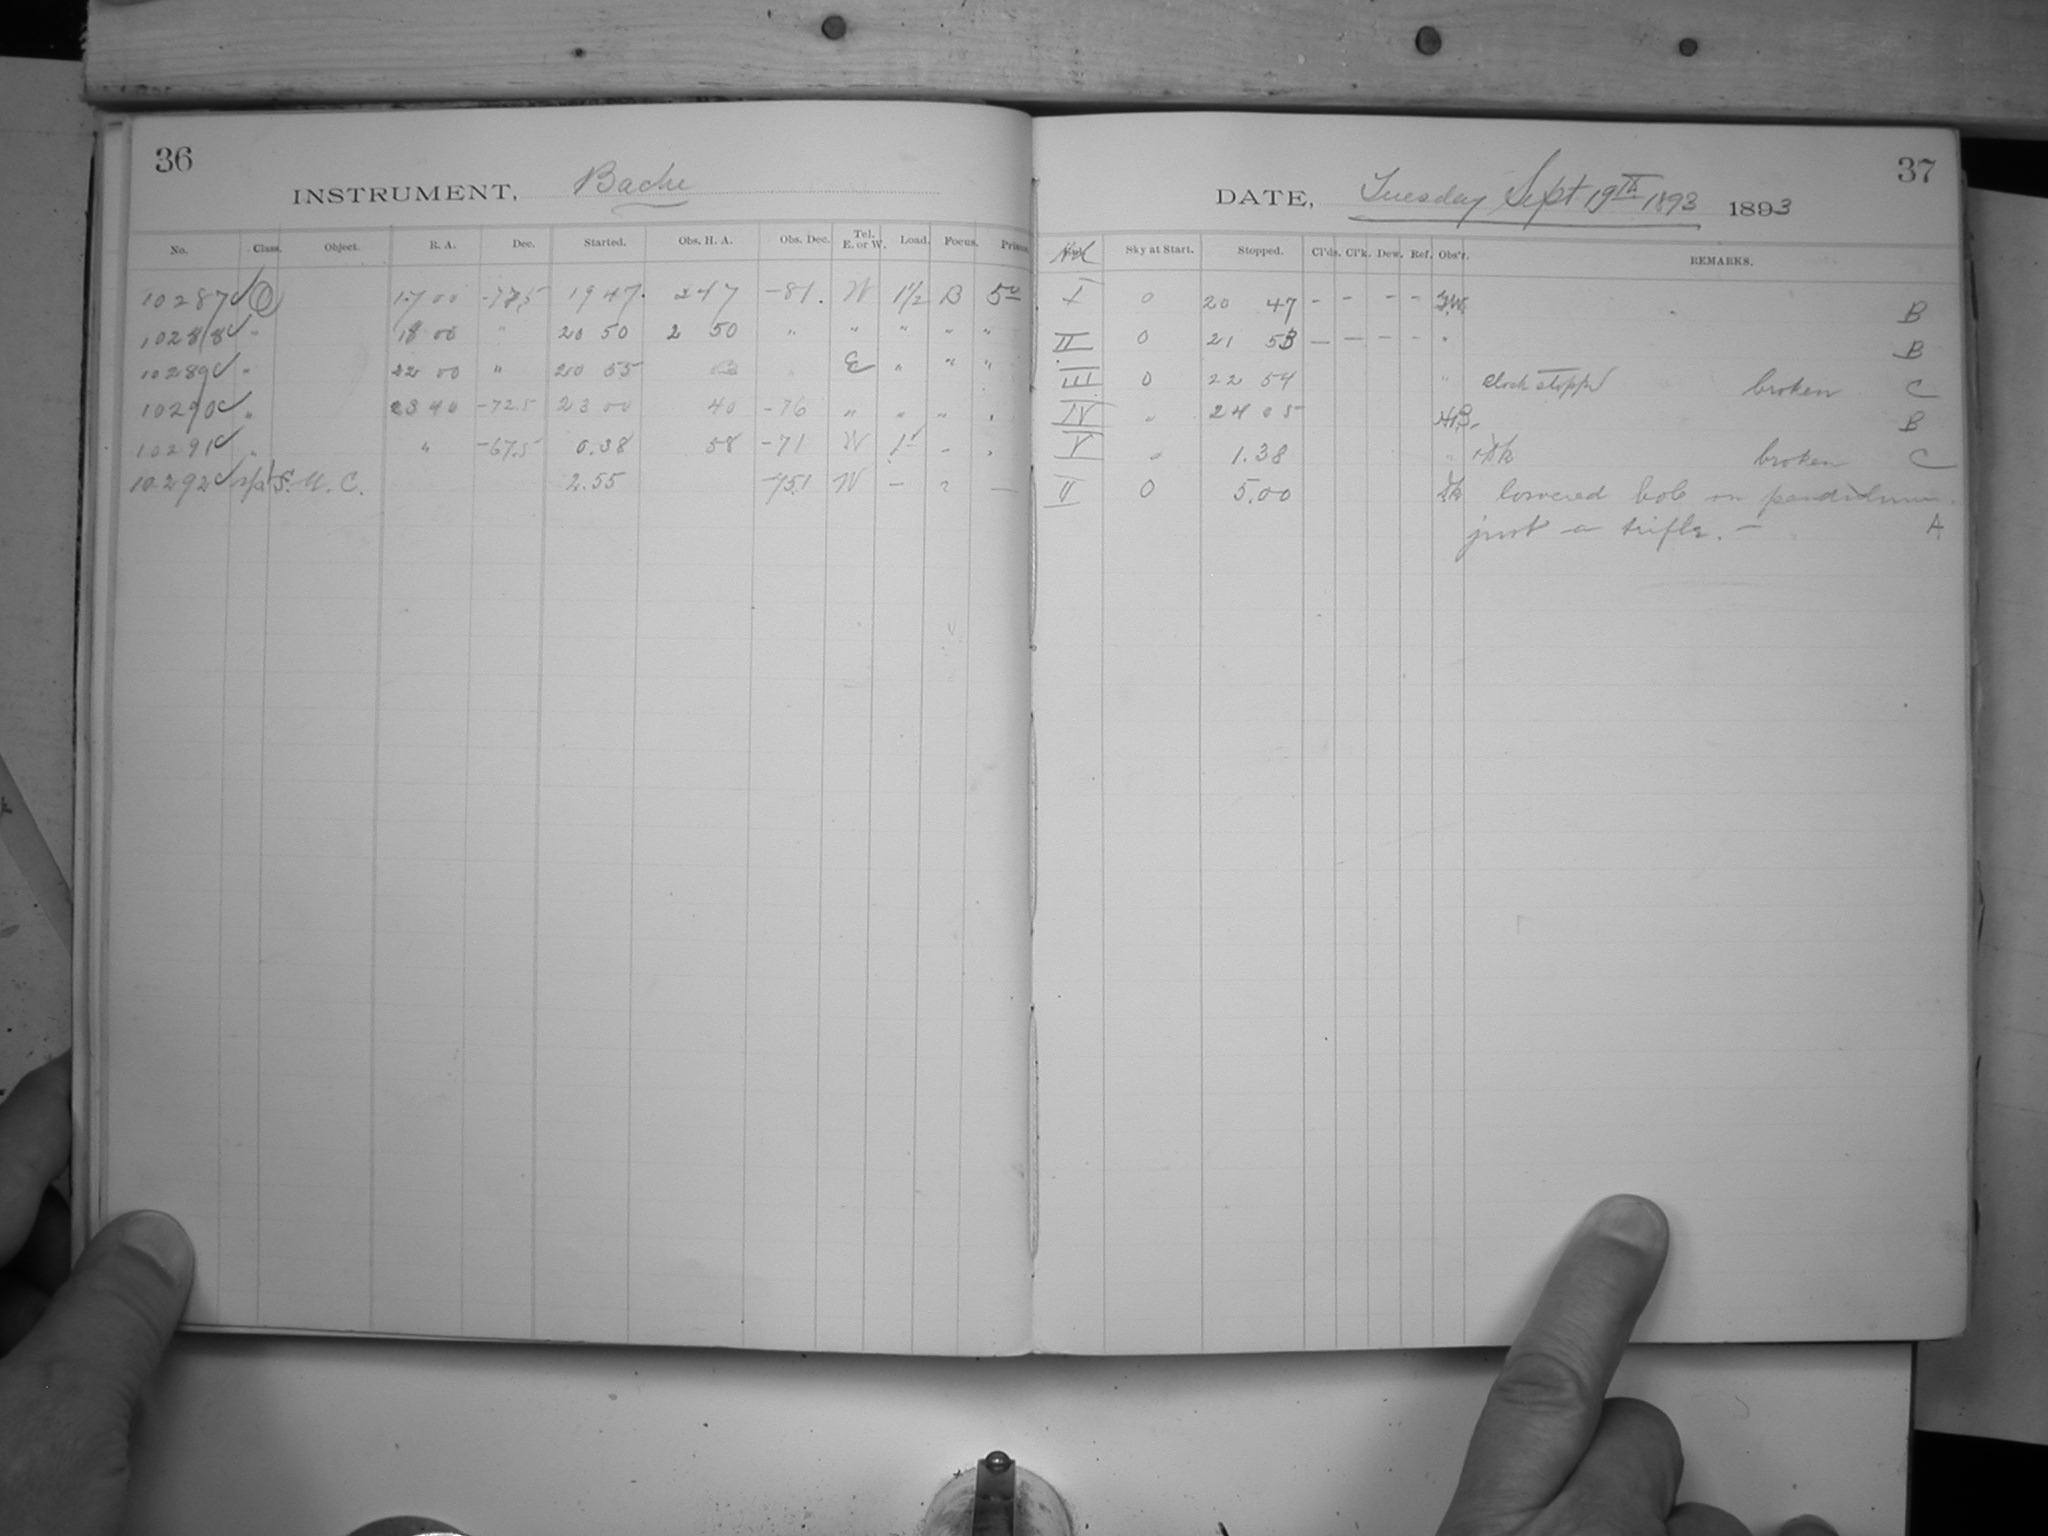 36
INSTRUMENT, Bache
No. Class. Object. R. A. Dec. Started. Obs. H. A. Obs. Dec. Tel. E. or W. Load. Focus.
10287 17 00 -77.5 19 47 2 47 -81. W 1½ B
10288 " 18 00 " 20 50 2 50 " " " " "
10289 " 22 00 " 20 55 E " " "
10290 " 23 40 -72.5 23 00 40 -76 " " " "
10291 " " -67.5 0.38 58 -71 W
10292 S. M. C. 2.55 -75.1 W —
37
DATE, Tuesday Sept 19th 1893 1893
Sky at Start. Stopped. Cl'ds. Cl'k. Dew. Ref. Obs'r. REMARKS.
I 0 20 47 - - - - B
II 0 21 53 — — — - " B
III 0 22 54 " clock stopped broken C
IV " 24 05 B
V " 1.38 " broken C
II 0 5.00 lowered bob on pendulum
just a trifle. — A